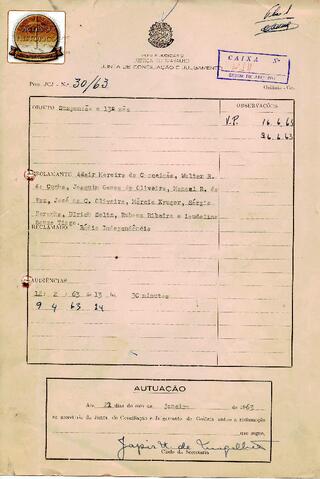 PODER JUDICIÁRIO
JUSTIÇA DO TRABALHO
JUNTA DE CONCILIAÇÃO E JULGAMENTO
CAIXA Nº
Proc. JCJ - Nº 30/63
Goiânia - Go.
OBJETO Suspensão e 13º mês
OBSERVAÇÕES
V.P. 16.6.63
26.6.63
RECLAMANTE Adair Moreira da Conceição, Walter R.
da Cunha, Joaquim Gomes de Oliveira, Manoel R. de
Paz, José de C. Oliveira, Márcio Kruger, Sérgio
Ulrich Ruben Ribeira e Laudelino
Tiago.
RECLAMADO Rádio Independência
AUDIÊNCIAS
12 2 63 13 30 minutos
9 4 63 14
AUTUAÇÃO
Aos 21 dias do mês de Janeiro de 1963
na secretaria da Junta de Conciliação e Julgamento de Goiânia autuo a reclamação
que segue.
Chefe da Secretaria